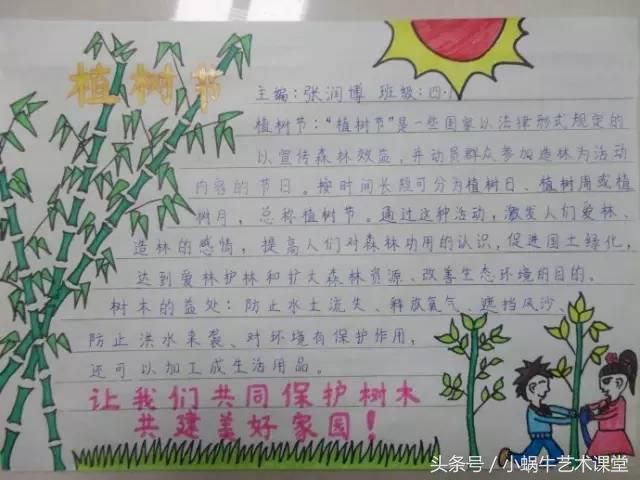 植树节
主编:张润博 班级:四·1
植树节:“植树节”是一些国家以法律形式规定的
以宣传森林效益,并动员群众参加造林为活动
内容的节日。按时间长短可分为植树日、植树周或植
树月,总称植树节。通过这种活动,激发人们爱林、
造林的感情,提高人们对森林功用的认识,促进国土绿化,
达到爱林护林和扩大森林资源、改善生态环境的目的。
树木的益处:防止水土流失、释放氧气、遮挡风沙、
防止洪水来袭、对环境有保护作用,
还可以加工成生活用品。
让我们共同保护树木
共建美好家园!
头条号/小蜗牛艺术课堂